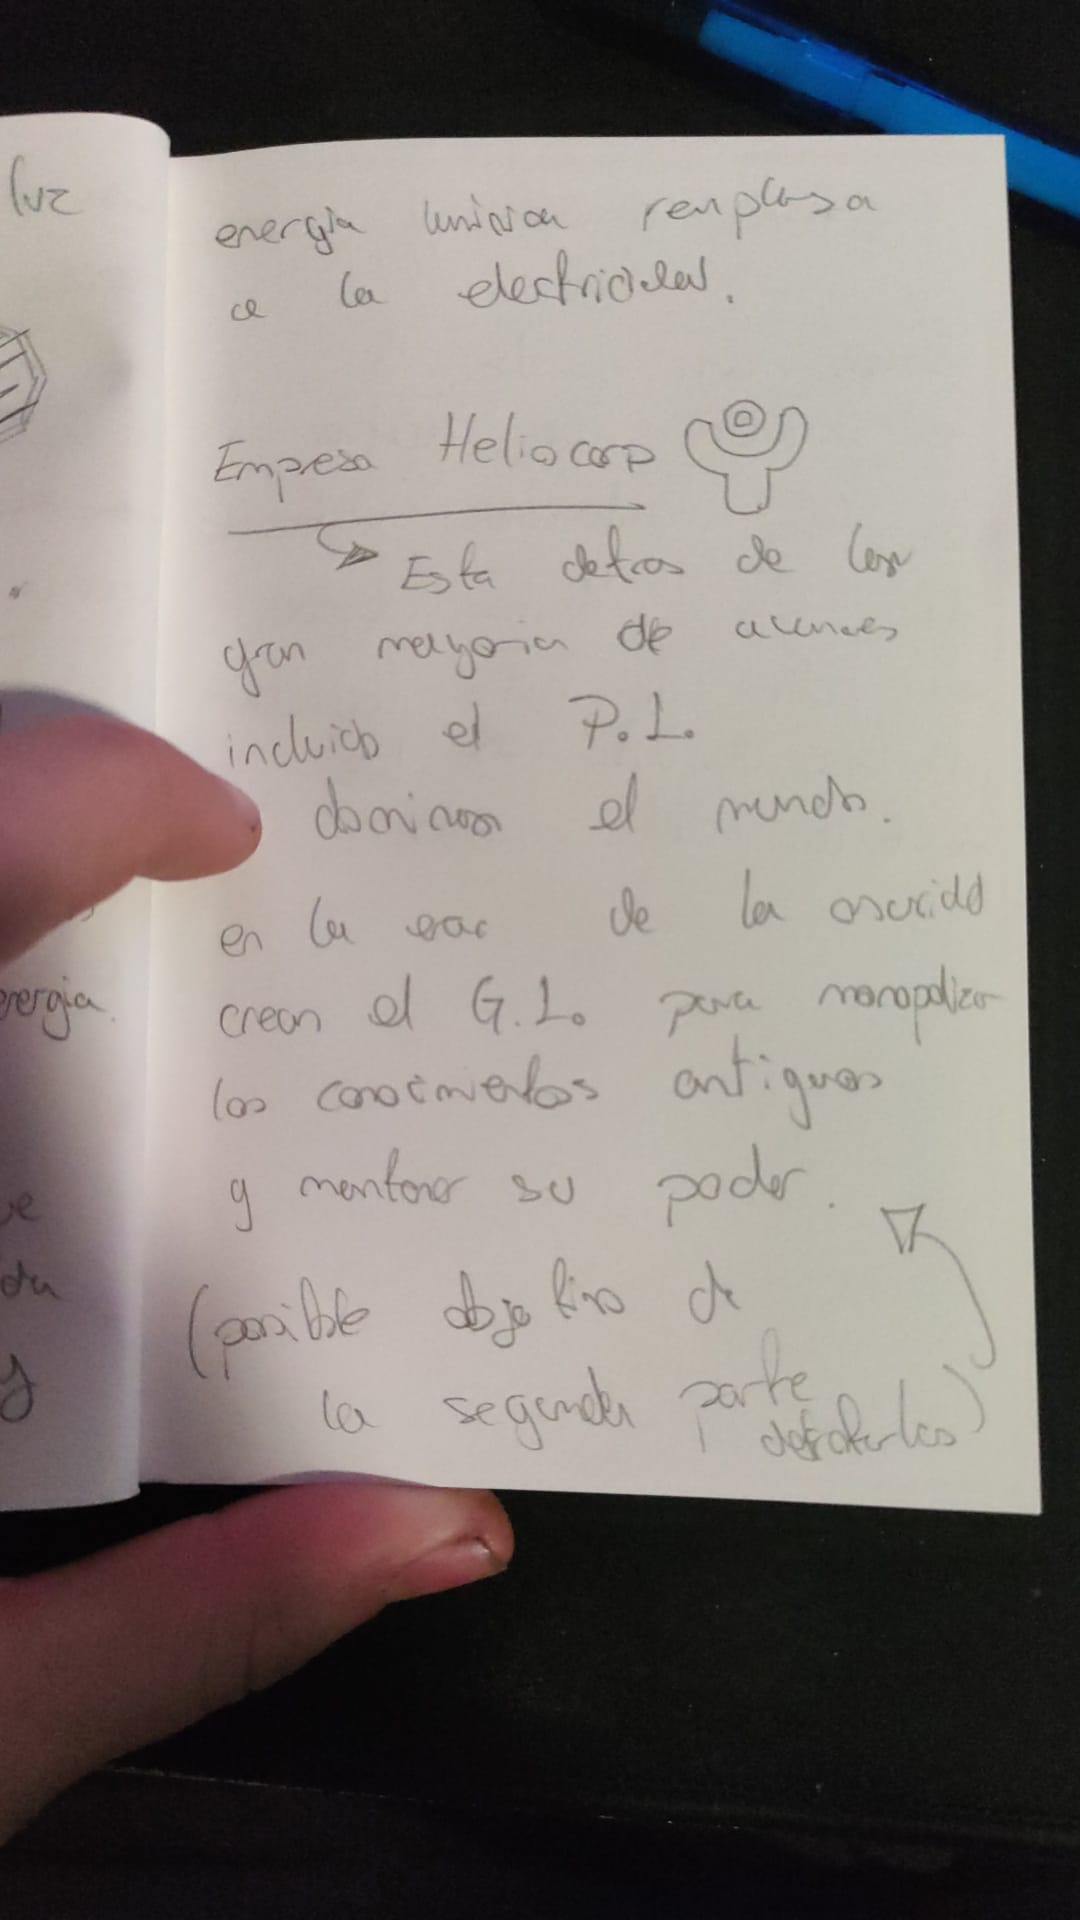 luz
energia
energia luminica remplasa
a la electricidad.
Empresa Heliocorp
Esta detras de la
gran mayoria de avances
incluido el P.L.
dominan el mundo.
en la era de la oscuridad
crean el G.L. para monopolizar
los conocimientos antiguos
y mantener su poder.
(posible objetivo de
la segunda parte
derrotarlos)